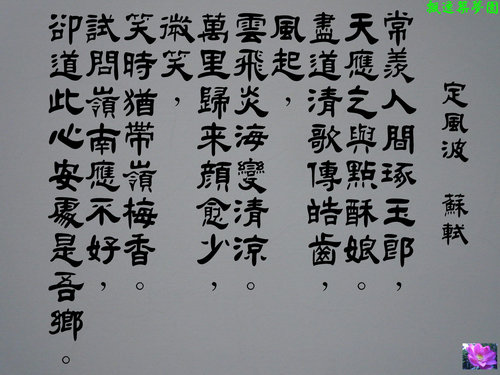 定風波 蘇軾
常羨人間琢玉郎，
天應乞與點酥娘。
盡道清歌傳皓齒，
風起，
雲飛炎海變清涼。
萬里歸来顏愈少，
微笑，
笑時猶帶嶺梅香。
試問嶺南應不好，
卻道此心安處是吾鄉。